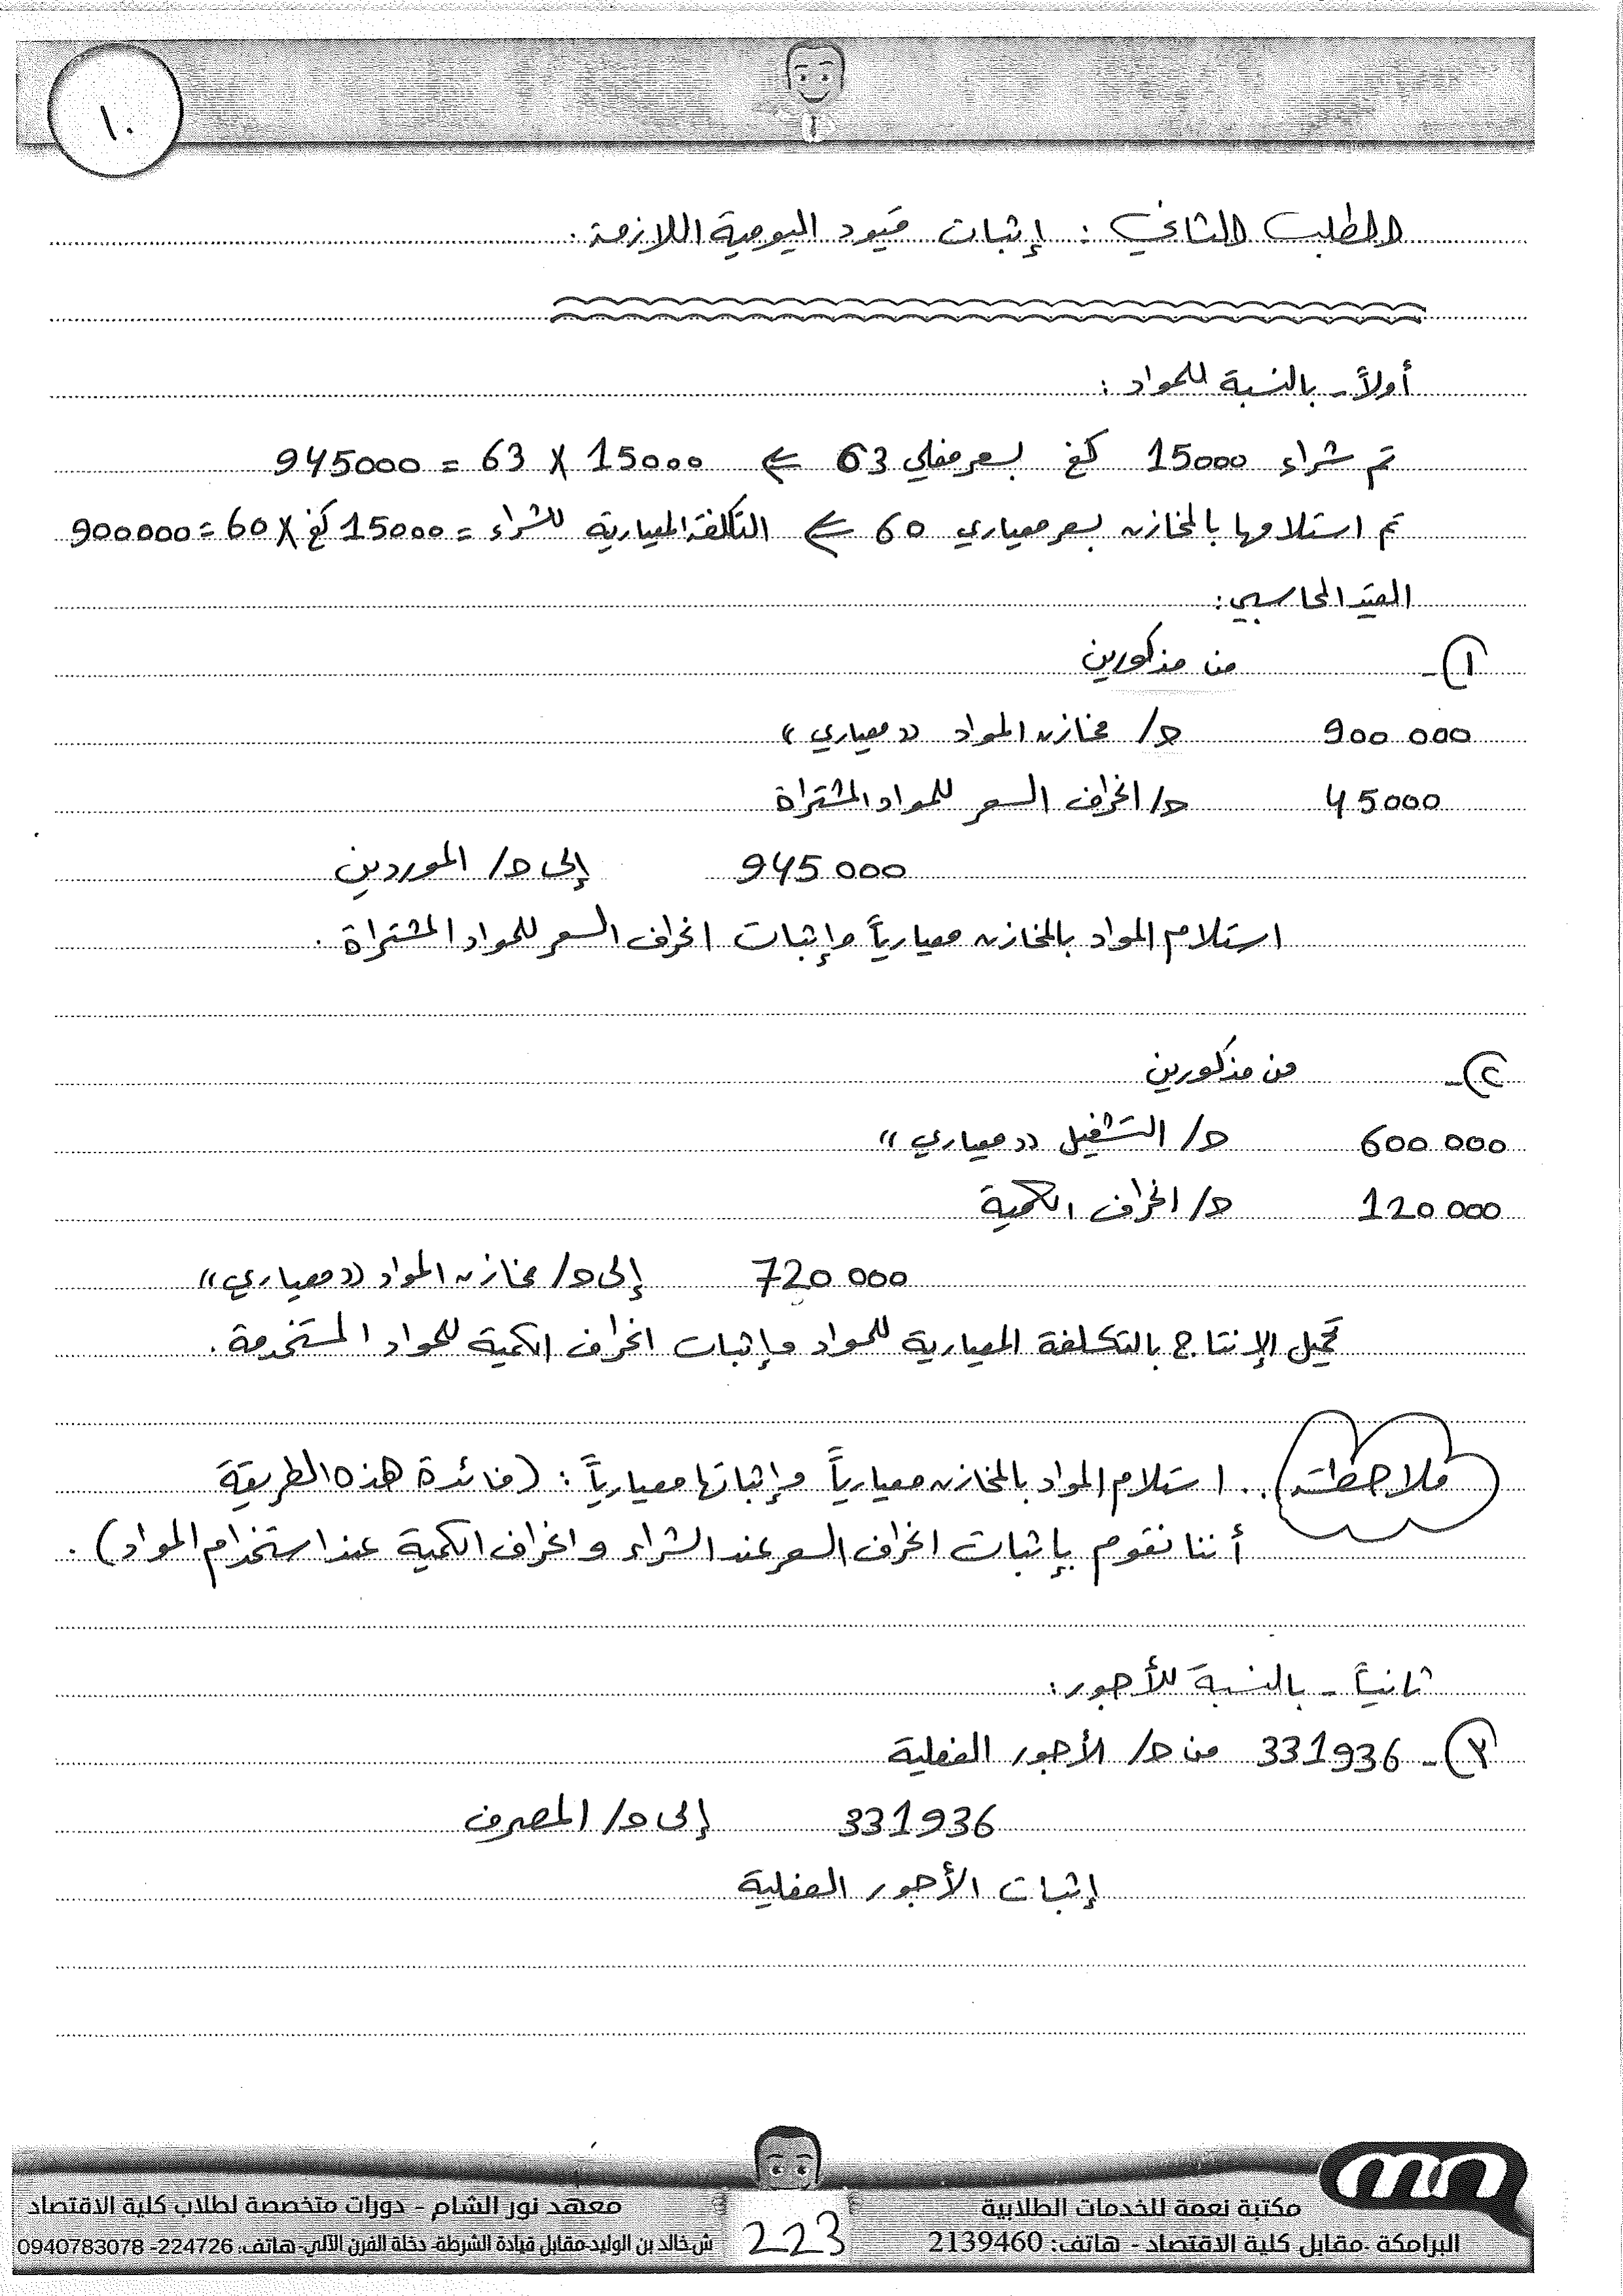 ١٠
الطلب الثاني : إثبات قيود اليومية اللازمة .
أولاً - بالنسبة للمواد :
تم شراء 15000 كغ بسعر فعلي 63 ⇐ 15000 X 63 = 945000
تم استلامها بالمخازن بسعر معياري 60 ⇐ التكلفة المعيارية للشراء = 15000 كغ X 60 = 900000
القيد المحاسبي :
١- من مذكورين
900 000 ح/ مخازن المواد ((معياري))
45000 ح/ انحراف السعر للمواد المشتراة
945 000 إلى ح/ الموردين
استلام المواد بالمخازن معيارياً وإثبات انحراف السعر للمواد المشتراة .
٢- من مذكورين
600 000 ح/ التشغيل ((معياري))
120 000 ح/ انحراف الكمية
720 000 إلى ح/ مخازن المواد ((معياري))
تحميل الإنتاج بالتكلفة المعيارية للمواد وإثبات انحراف الكمية للمواد المستخدمة .
ملاحظة .. استلام المواد بالمخازن معيارياً وإثباتها معيارياً : (فائدة هذه الطريقة
أننا نقوم بإثبات انحراف السعر عند الشراء وانحراف الكمية عند استخدام المواد) .
ثانياً - بالنسبة للأجور :
٣- 331936 من ح/ الأجور الفعلية
331936 إلى ح/ المصرف
إثبات الأجور الفعلية
مكتبة نعمة للخدمات الطلابية
البرامكة -مقابل كلية الاقتصاد - هاتف: 2139460
223
معهد نور الشام - دورات متخصصة لطلاب كلية الاقتصاد
ش خالد بن الوليد-مقابل قيادة الشرطة- دخلة الفرن الآلي-هاتف: 224726- 0940783078